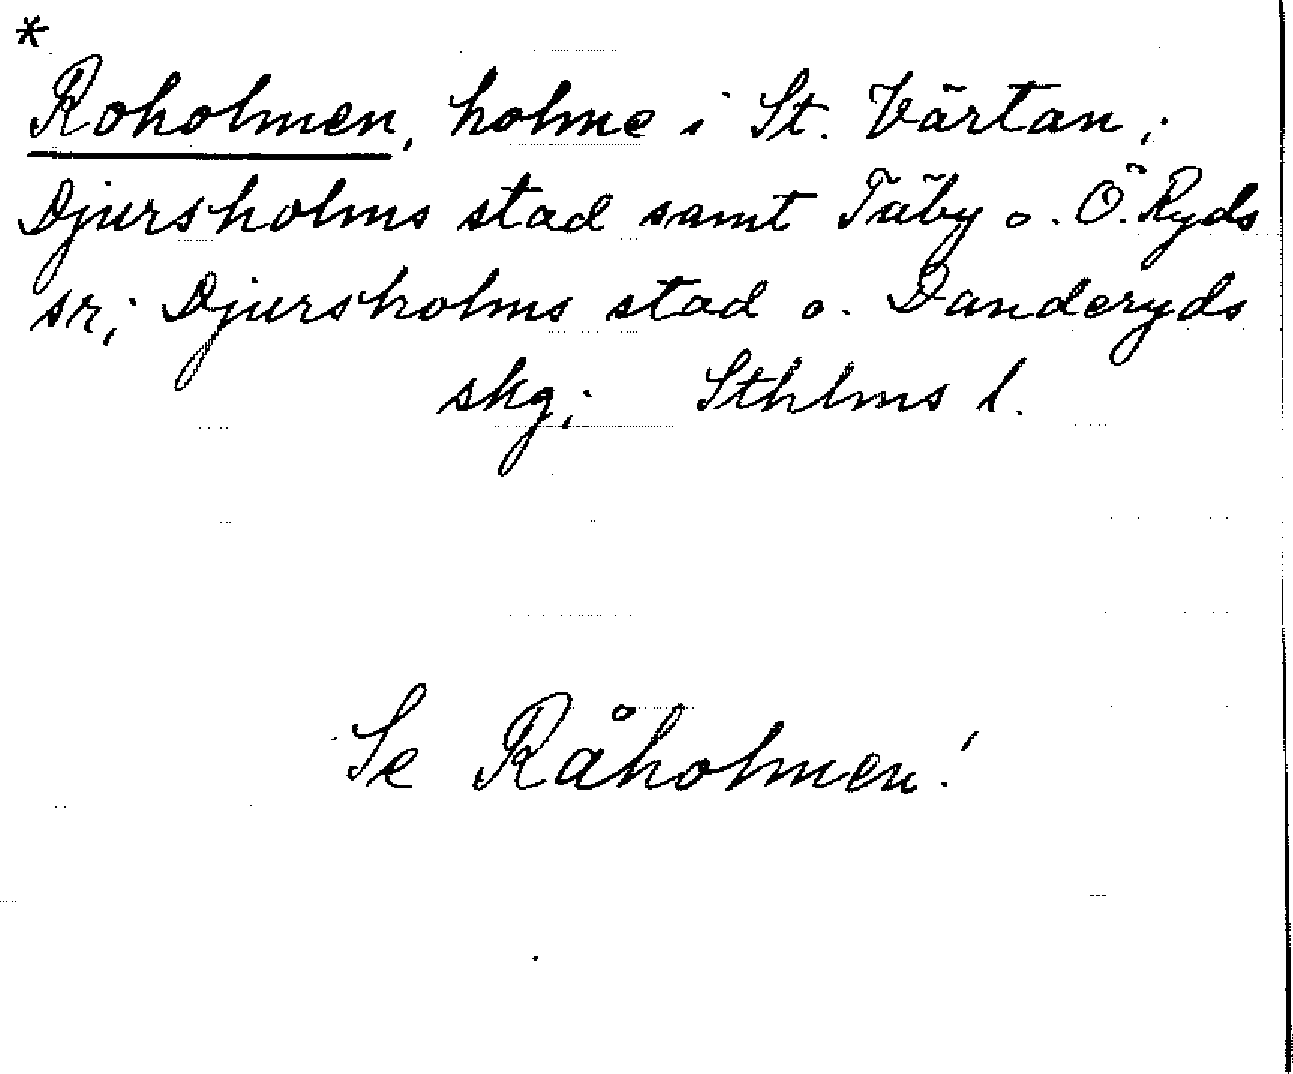 *
Roholmen, holme i St. Värtan;
Djursholms stad samt Täby o. Ö. Ryds
sr; Djursholms stad o. Danderyds
skg; Sthlms l.
Se Råholmen!